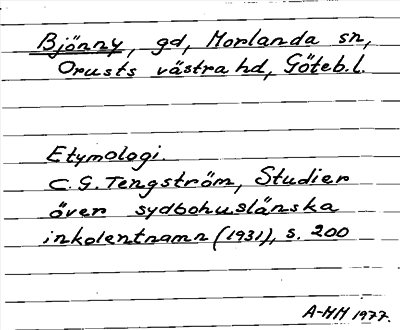 Bjönny, gd, Morlanda sn,
Orusts västra hd, Göteb.l.
Etymologi.
C.G. Tengström, Studier
över sydbohuslänska
inkolentnamn (1931), s. 200
A-HH 1977.